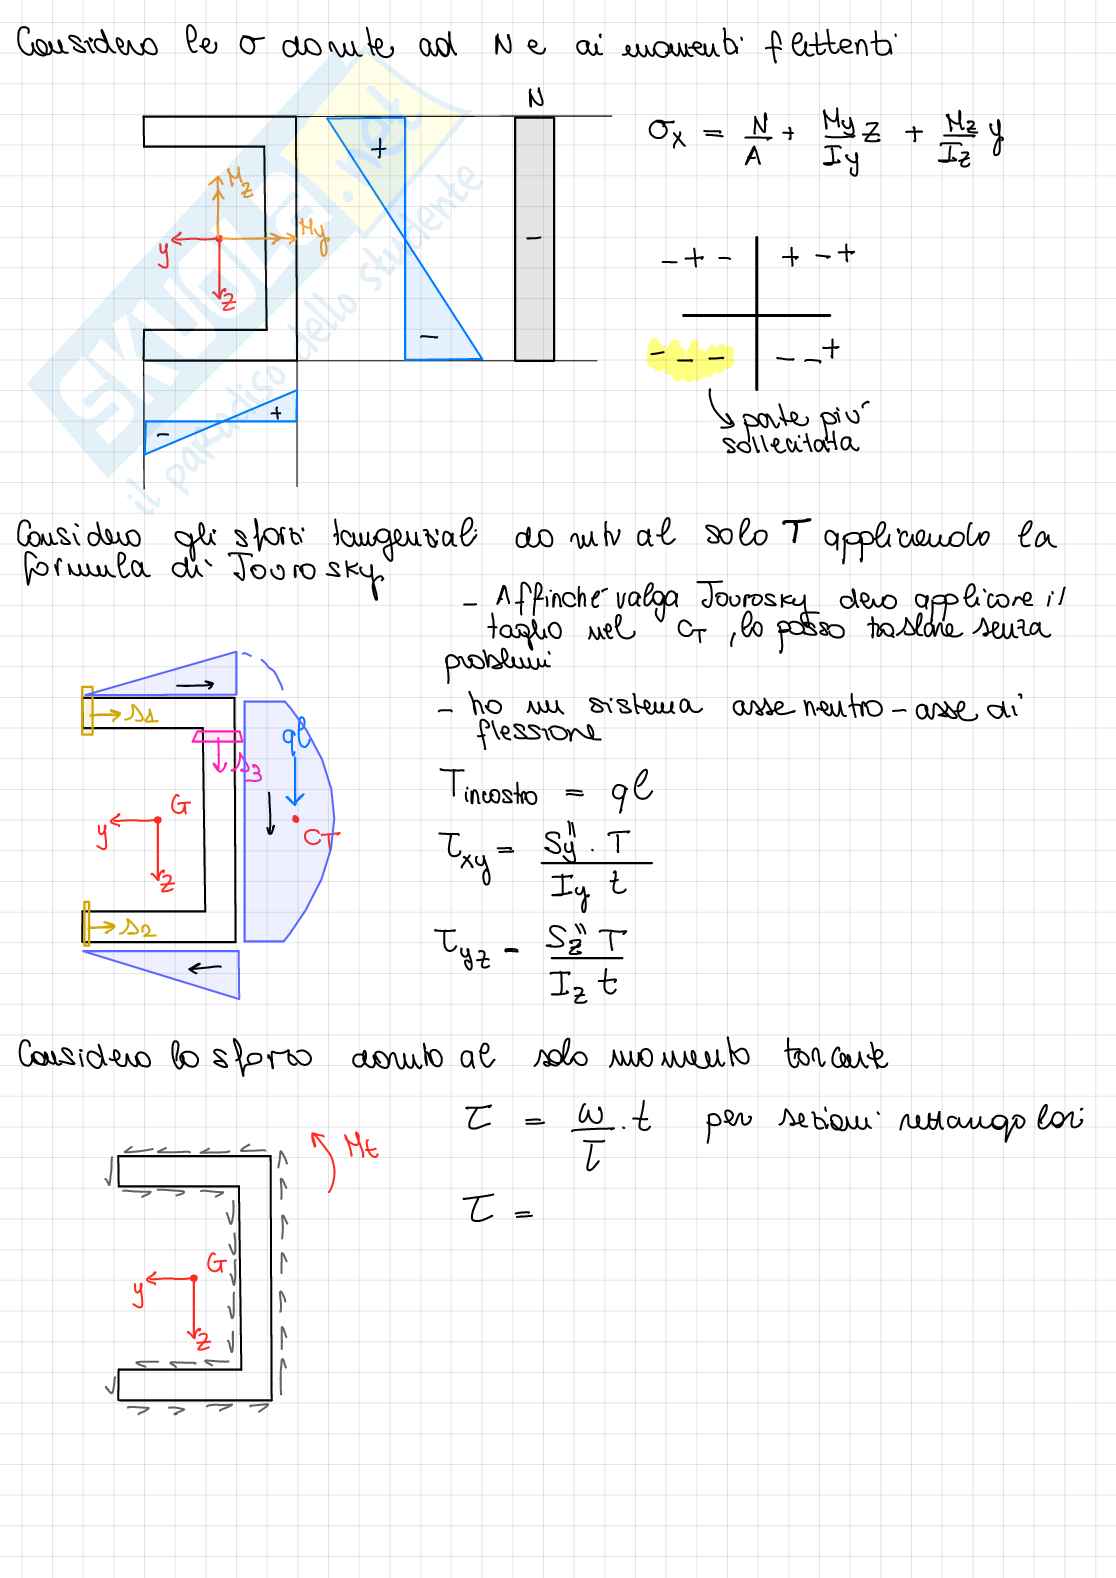 Considero le σ dovute ad N e ai momenti flettenti
N
σx = N/A + My/Iy z + Mz/Iz y
+
Mz
My
y
z
-
-
- + -
+ - +
- - -
- - +
+
-
parte più
sollecitata
SKUOLA.net
il paradiso dello studente
Considero gli sforzi tangenziali dovuti al solo T applicando la
formula di Jourosky
- Affinché valga Jourosky devo applicare il
taglio nel CT, lo posso traslare senza
problemi
- ho un sistema asse neutro - asse di
flessione
s1
ql
s3
G
y
CT
z
s2
Tincastro = ql
τxy = Sy'' · T / Iy t
τyz = Sz'' T / Iz t
Considero lo sforzo dovuto al solo momento torcente
τ = ω/I · t per sezioni rettangolari
Mt
τ =
G
y
z